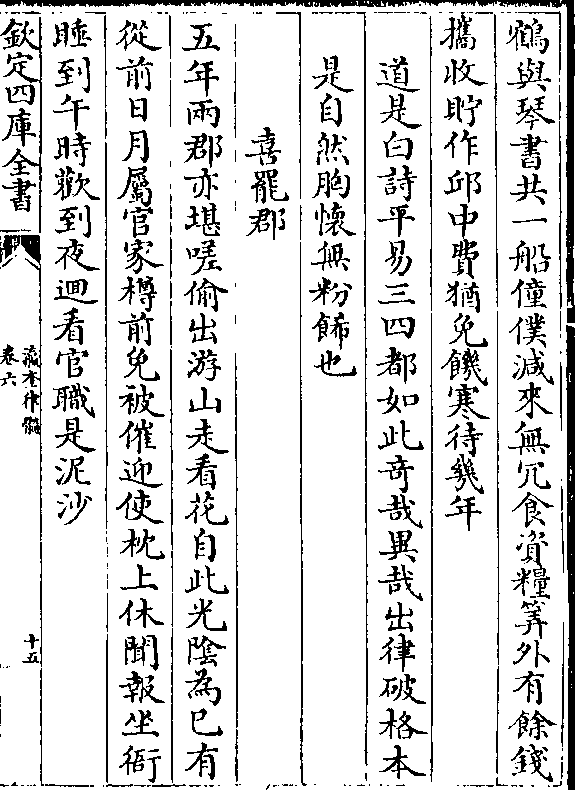 鶴與琴書共一船僮僕減來無冗食資糧筭外有餘錢
攜收貯作邱中費猶免饑寒待幾年
道是白詩平易三四都如此奇哉異哉出律破格本
是自然胸懷無粉餙也
喜罷郡
五年兩郡亦堪嗟偷出游山走看花自此光陰為己有
從前日月屬官家樽前免被催迎使枕上休聞報坐衙
睡到午時歡到夜迴看官職是泥沙
欽定四庫全書
瀛奎律髓
卷六
十五